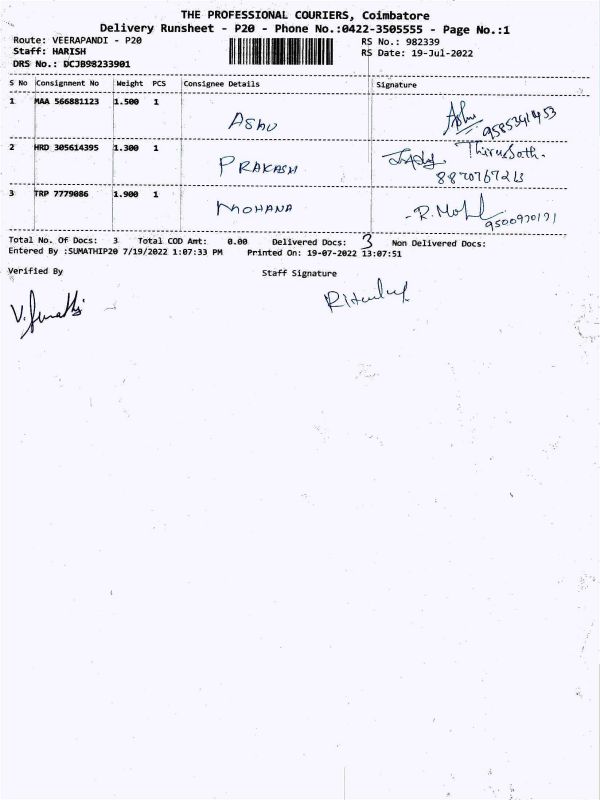 THE PROFESSIONAL COURIERS, Coimbatore
Delivery Runsheet - P20 - Phone No.:0422-3505555 - Page No.:1
Route: VEERAPANDI - P20
RS No.: 982339
Staff: HARISH
RS Date: 19-Jul-2022
DRS No.: DCJB98233901
S No Consignment No Weight PCS Consignee Details Signature
1 MAA 566881123 1.500 1 ASHU
2 HRD 305614395 1.300 1 PRAKASH
8870767213
3 TRP 7779086 1.900 1 MOHANA R. Moh
Total No. Of Docs: 3 Total COD Amt: 0.00 Delivered Docs: 3 Non Delivered Docs:
Entered By :SUMATHIP20 7/19/2022 1:07:33 PM Printed On: 19-07-2022 13:07:51
Verified By Staff Signature
V. Sumathi